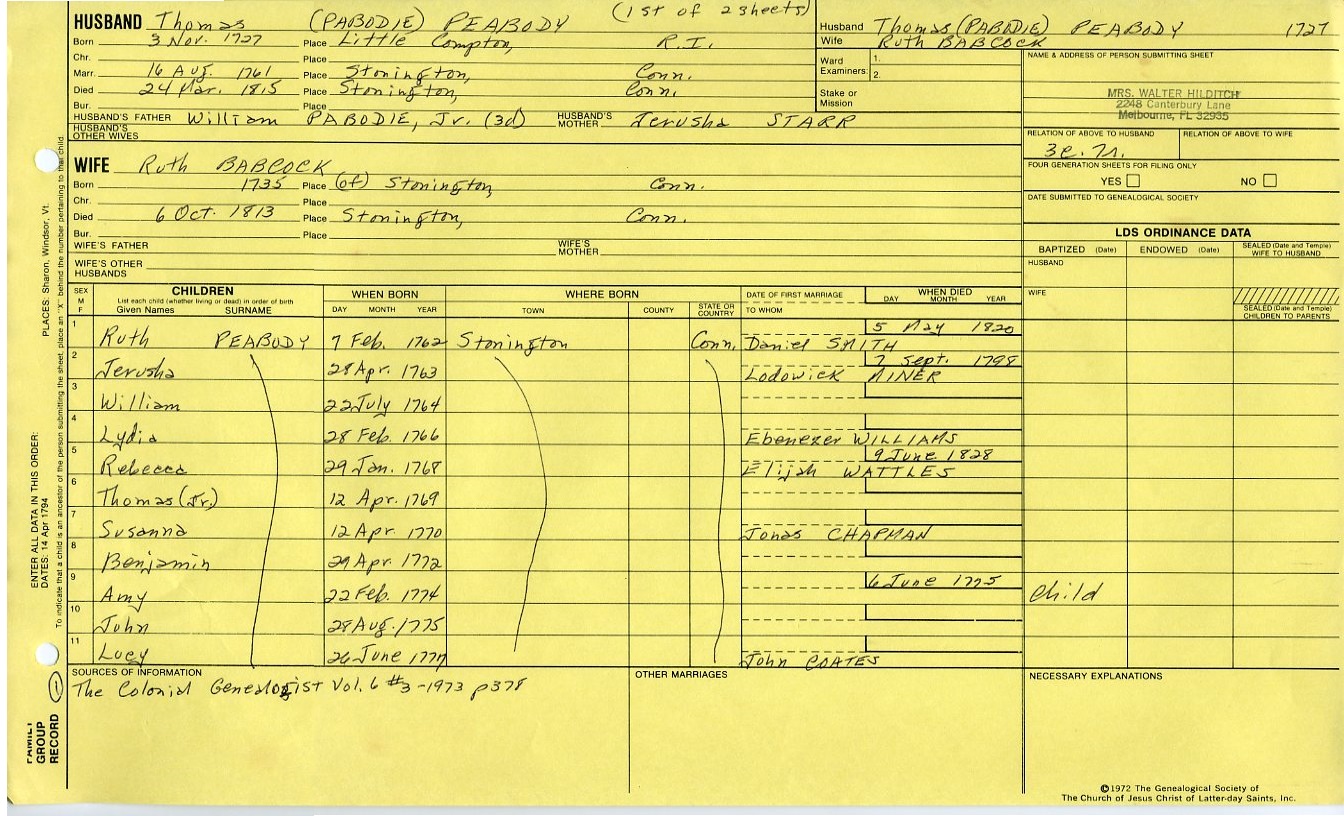 (1st of 2 sheets)
HUSBAND Thomas (PABODIE) PEABODY
Born 3 Nov. 1727 Place Little Compton, R.I.
Chr. Place
Marr. 16 Aug. 1761 Place Stonington, Conn.
Died 24 Mar. 1815 Place Stonington, Conn.
Bur. Place
HUSBAND'S FATHER William PABODIE, Jr. (3d) HUSBAND'S MOTHER Jerusha STARR
HUSBAND'S OTHER WIVES
Husband Thomas (PABODIE) PEABODY 1727
Wife Ruth BABCOCK
Ward Examiners: 1.
2.
Stake or Mission
NAME & ADDRESS OF PERSON SUBMITTING SHEET
MRS. WALTER HILDITCH
2248 Canterbury Lane
Melbourne, FL 32935
RELATION OF ABOVE TO HUSBAND RELATION OF ABOVE TO WIFE
FOUR GENERATION SHEETS FOR FILING ONLY
YES NO
DATE SUBMITTED TO GENEALOGICAL SOCIETY
WIFE Ruth BABCOCK
Born 1735 Place (of) Stonington, Conn.
Chr. Place
Died 6 Oct. 1813 Place Stonington, Conn.
Bur. Place
WIFE'S FATHER WIFE'S MOTHER
WIFE'S OTHER HUSBANDS
LDS ORDINANCE DATA
BAPTIZED (Date) ENDOWED (Date) SEALED (Date and Temple) WIFE TO HUSBAND
HUSBAND
WIFE
SEALED (Date and Temple) CHILDREN TO PARENTS
SEX M F CHILDREN WHEN BORN WHERE BORN DATE OF FIRST MARRIAGE WHEN DIED
List each child (whether living or dead) in order of birth
Given Names SURNAME DAY MONTH YEAR TOWN COUNTY STATE OR COUNTRY TO WHOM DAY MONTH YEAR
1 5 May 1820
Ruth PEABODY 7 Feb. 1762 Stonington Conn. Daniel SMITH
2 7 Sept. 1798
Jerusha 28 Apr. 1763 Lodowick MINER
3
William 22 July 1764
4
Lydia 28 Feb. 1766 Ebenezer WILLIAMS
5 9 June 1828
Rebecca 29 Jan. 1768 Elijah WATTLES
6
Thomas (Jr.) 12 Apr. 1769
7
Susanna 12 Apr 1770 Jonas CHAPMAN
8
Benjamin 29 Apr. 1772
9 6 June 1775
Amy 22 Feb. 1774 Child
10
John 28 Aug. 1775
11
Lucy 26 June 1777 John COATES
SOURCES OF INFORMATION
The Colonial Genealogist Vol. 6 #3-1973 p378
OTHER MARRIAGES
NECESSARY EXPLANATIONS
©1972 The Genealogical Society of
The Church of Jesus Christ of Latter-day Saints, Inc.
FAMILY GROUP RECORD 1
ENTER ALL DATA IN THIS ORDER:
DATES: 14 Apr 1794 PLACES: Sharon, Windsor, Vt.
To indicate that a child is an ancestor of the person submitting the sheet, place an "X" behind the number pertaining to that child